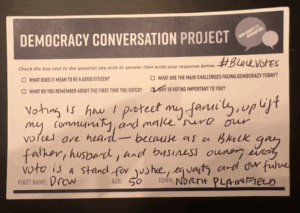 DEMOCRACY CONVERSATION PROJECT
#BlackVOTES
Check the box next to the question you wish to answer, then write your response below.
☐ WHAT DOES IT MEAN TO BE A GOOD CITIZEN?
☐ WHAT ARE THE MAIN CHALLENGES FACING DEMOCRACY TODAY?
☐ WHAT DO YOU REMEMBER ABOUT THE FIRST TIME YOU VOTED?
WHY IS VOTING IMPORTANT TO YOU?
Voting is how I protect my family, uplift
my community, and make sure our
voices are heard — because as a Black gay
father, husband, and business owner, every
vote is a stand for justice, equality and our future
FIRST NAME: Drew AGE: 50 TOWN: NORTH PLAINFIELD